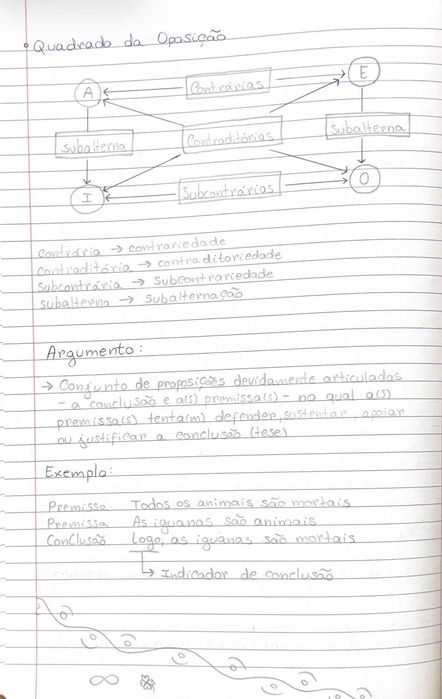 • Quadrado da Oposição
A Contrárias E
subalterna Contraditórias subalterna
I Subcontrárias O
contrária → contrariedade
contraditória → contraditoriedade
subcontrária → subcontrariedade
subalterna → subalternação
Argumento:
→ Conjunto de proposições devidamente articuladas
- a conclusão e a(s) premissa(s) - no qual a(s)
premissa(s) tenta(m) defender, sustentar, apoiar
ou justificar a conclusão (tese)
Exemplo:
Premissa Todos os animais são mortais
Premissa As iguanas são animais
Conclusão Logo, as iguanas são mortais
↳ Indicador de conclusão